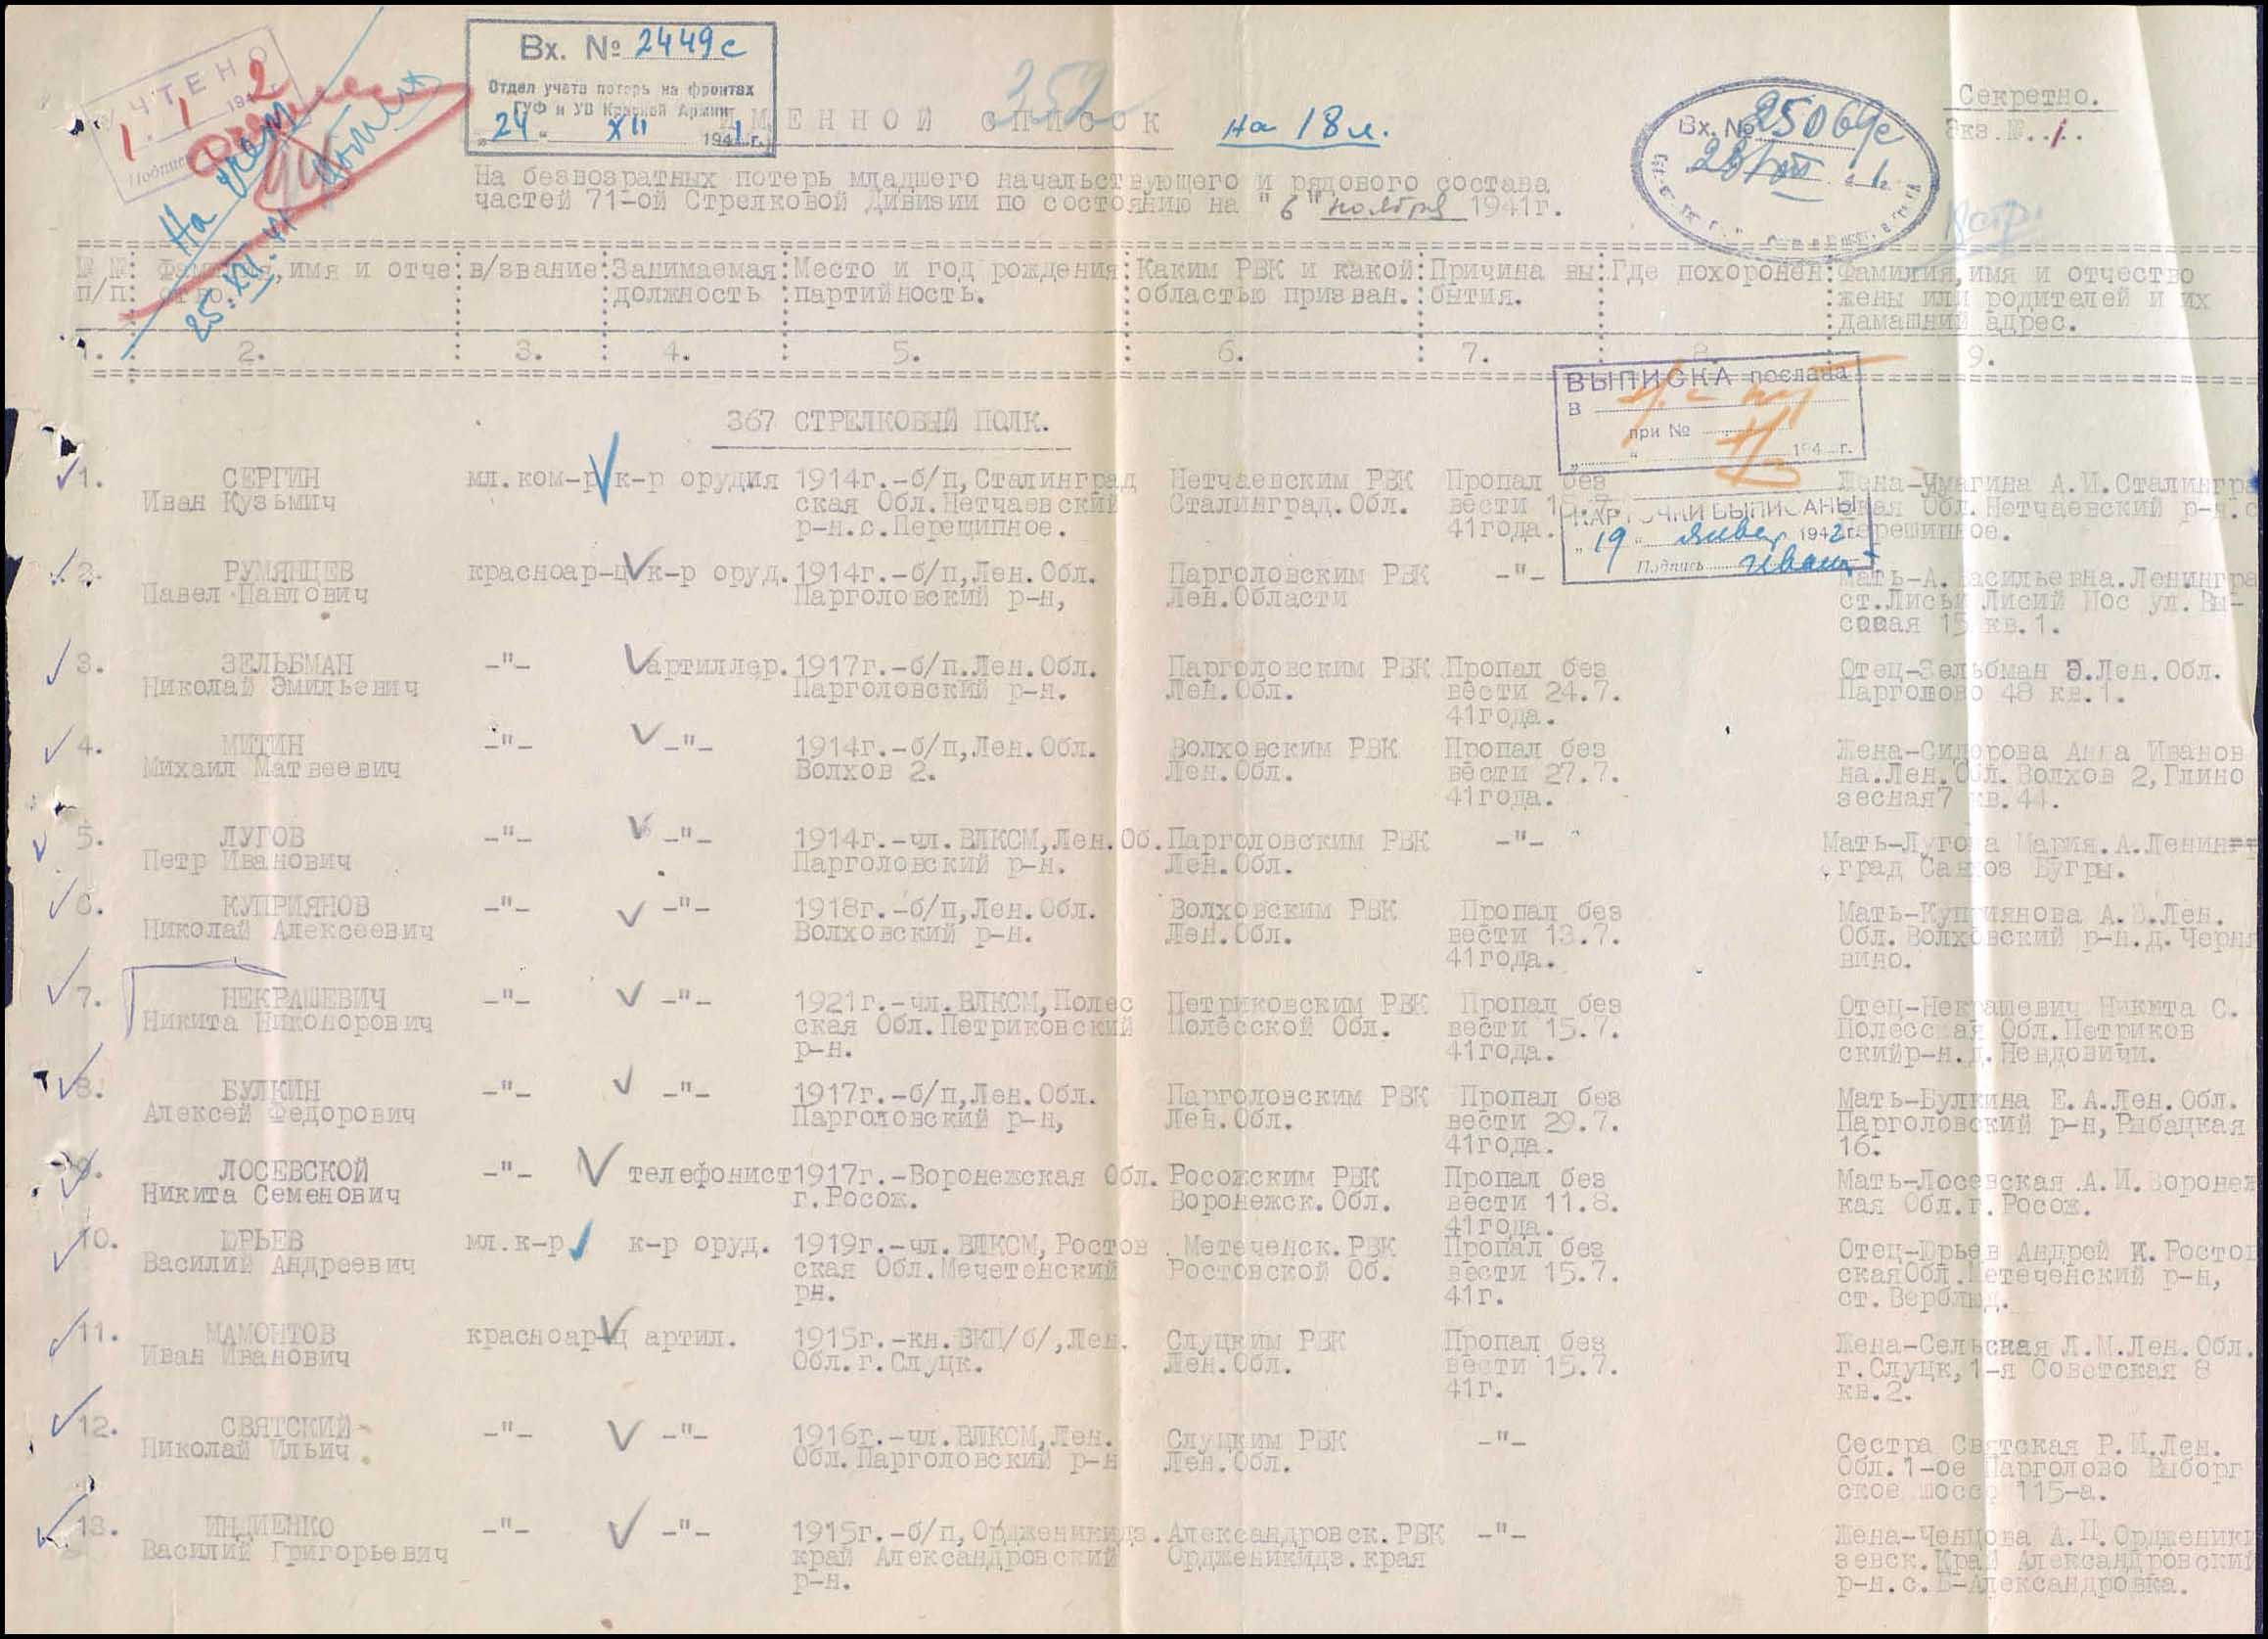 УЧТЕНО
1. 1 2
Подпись
На учет
25.XII.41
Вх. № 2449с
Отдел учета потерь на фронтах
ГУФ и УВ Красной Армии
„24“ XII 1941 г.
352
ИМЕННОЙ СПИСОК
на 18 л.
Вх. № 25069с
Секретно.
Экз.№..1..
На безвозвратных потерь младшего начальствующего и рядового состава
частей 71-ой Стрелковой Дивизии по состоянию на "6" ноября 1941г.
18 стр.
№ №: Фамилия,имя и отче:в/звание:Занимаемая:Место и год рождения:Каким РВК и какой:Причина вы:Где похоронен:Фамилия,имя и отчество
п/п: ство. :должность :партийность. :областью призван.:бытия. :жены или родителей и их
:дамашний адрес.
1. 2. 3. 4. 5. 6. 7. 8. 9.
ВЫПИСКА послана
в
при №
„ “ 194 г.
367 СТРЕЛКОВЫЙ ПОЛК.
1. СЕРГИН мл.ком-р к-р орудия 1914г.-б/п,Сталинград Нетчаевским РВК Пропал без Жена-Чумагина А.И.Сталингра
Иван Кузьмич ская Обл.Нетчаевский Сталинград.Обл. вести ская Обл.Нетчаевский р-н.с
р-н.с.Перещипное. 41года. Перешипное.
КАРТОЧКИ ВЫПИСАНЫ
„19“ январ 1942 г.
Подпись
2. РУМЯНЦЕВ красноар-ц к-р оруд. 1914г.-б/п,Лен.Обл. Парголовским РВК -"- Мать-А.Васильевна.Ленингра
Павел Павлович Парголовский р-н, Лен.Области ст.Лисьи Лисий Нос ул.Вы-
совая 15 кв.1.
3. ЗЕЛЬБМАН -"- артиллер. 1917г.-б/п.Лен.Обл. Парголовским РВК Пропал без Отец-Зельбман Э.Лен.Обл.
Николай Эмильевич Парголовский р-н. Лен.Обл. вести 24.7. Парголово 48 кв.1.
41года.
4. МИТИН -"- -"- 1914г.-б/п,Лен.Обл. Волховским РВК Пропал без Жена-Сидорова Анна Иванов
Михаил Матвеевич Волхов 2. Лен.Обл. вести 27.7. на.Лен.Обл.Волхов 2,Глино
41года. зесная7 кв.44.
5. ЛУГОВ -"- -"- 1914г.-чл.ВЛКСМ,Лен.Об.Парголовским РВК -"- Мать-Лугова Мария.А.Ленин
Петр Иванович Парголовский р-н. Лен.Обл. град Санхоз Бугры.
6. КУПРИЯНОВ -"- -"- 1918г.-б/п,Лен.Обл. Волховским РВК Пропал без Мать-Куприянова А.В.Лен.
Николай Алексеевич Волховский р-н. Лен.Обл. вести 13.7. Обл.Волховский р-н.д.Черня
41года. вино.
7. НЕКРАШЕВИЧ -"- -"- 1921г.-чл.ВЛКСМ,Полес Петриковским РВК Пропал без Отец-Некрашевич Никита С.
Никита Никонорович ская Обл.Петриковский Полесской Обл. вести 15.7. Полесская Обл.Петриков
р-н. 41года. скийр-н.д.Невдовичи.
8. БУЛКИН -"- -"- 1917г.-б/п,Лен.Обл. Парголовским РВК Пропал без Мать-Булкина Е.А.Лен.Обл.
Алексей Федорович Парголовский р-н, Лен.Обл. вести 29.7. Парголовский р-н,Рыбацкая
41года. 16.
9. ЛОСЕВСКОЙ -"- телефонист1917г.-Воронежская Обл. Росожским РВК Пропал без Мать-Лосевская.А.И.Воронеж
Никита Семенович г.Росож. Воронежск.Обл. вести 11.8. кая Обл.г.Росож.
41года.
10. ЮРЬЕВ мл.к-р к-р оруд. 1919г.-чл.ВЛКСМ,Ростов Метеченск.РВК Пропал без Отец-Юрьев Андрей К.Ростов
Василий Андреевич ская Обл.Мечетенский Ростовской Об. вести 15.7. скаяОбл.Метеченский р-н,
рн. 41г. ст.Верблюд.
11. МАМОНТОВ красноар-ц артил. 1915г.-кн.ВКП/б/,Лен. Слуцким РВК Пропал без Жена-Сельская Л.М.Лен.Обл.
Иван Иванович Обл.г.Слуцк. Лен.Обл. вести 15.7. г.Слуцк,1-я Советская 8
41г. кв.2.
12. СВЯТСКИЙ -"- -"- 1916г.-чл.ВЛКСМ,Лен. Слуцким РВК -"- Сестра Святская Р.И.Лен.
Николай Ильич Обл.Парголовский р-н Лен.Обл. Обл.1-ое Парголово Выборг
ское шоссе 115-а.
13. ИНДИЕНКО -"- -"- 1915г.-б/п,Ордженикидз.Александровск.РВК -"- Жена-Ченцова А.П.Ордженики
Василий Григорьевич край Александровский Ордженикидз.края зевск.Край Александровский
р-н. р-н.с.Б-Александровка.